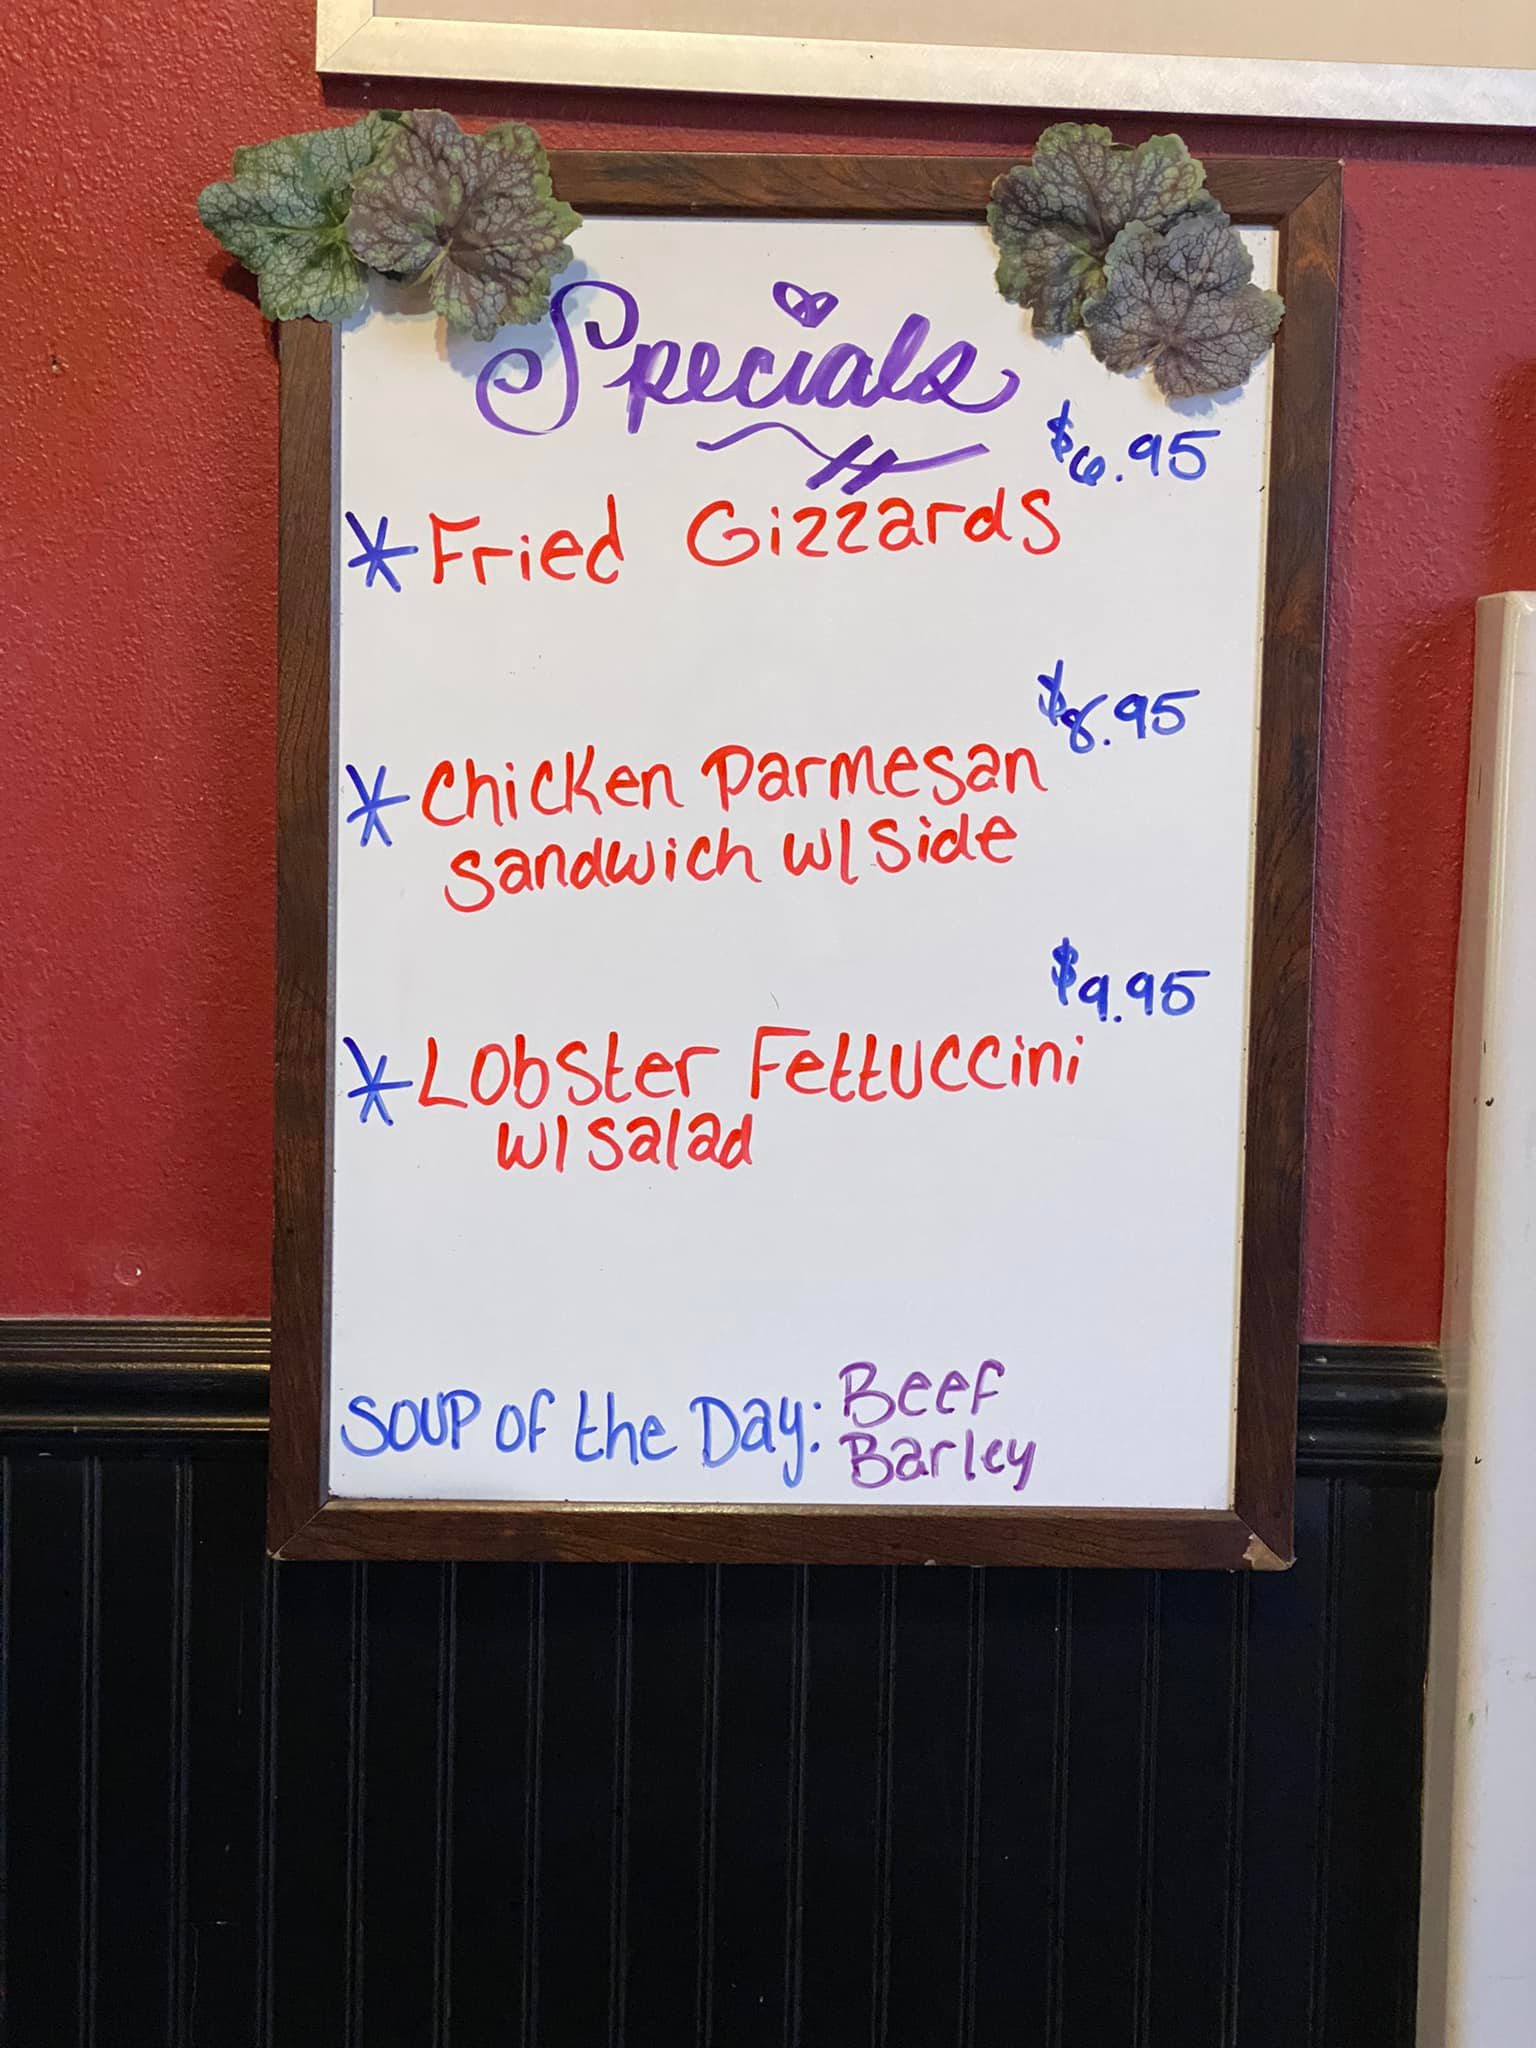 Specials
$6.95
* Fried Gizzards
$8.95
* Chicken Parmesan
Sandwich w/ Side
$9.95
* Lobster Fettuccini
w/ Salad
Soup of the Day: Beef
Barley